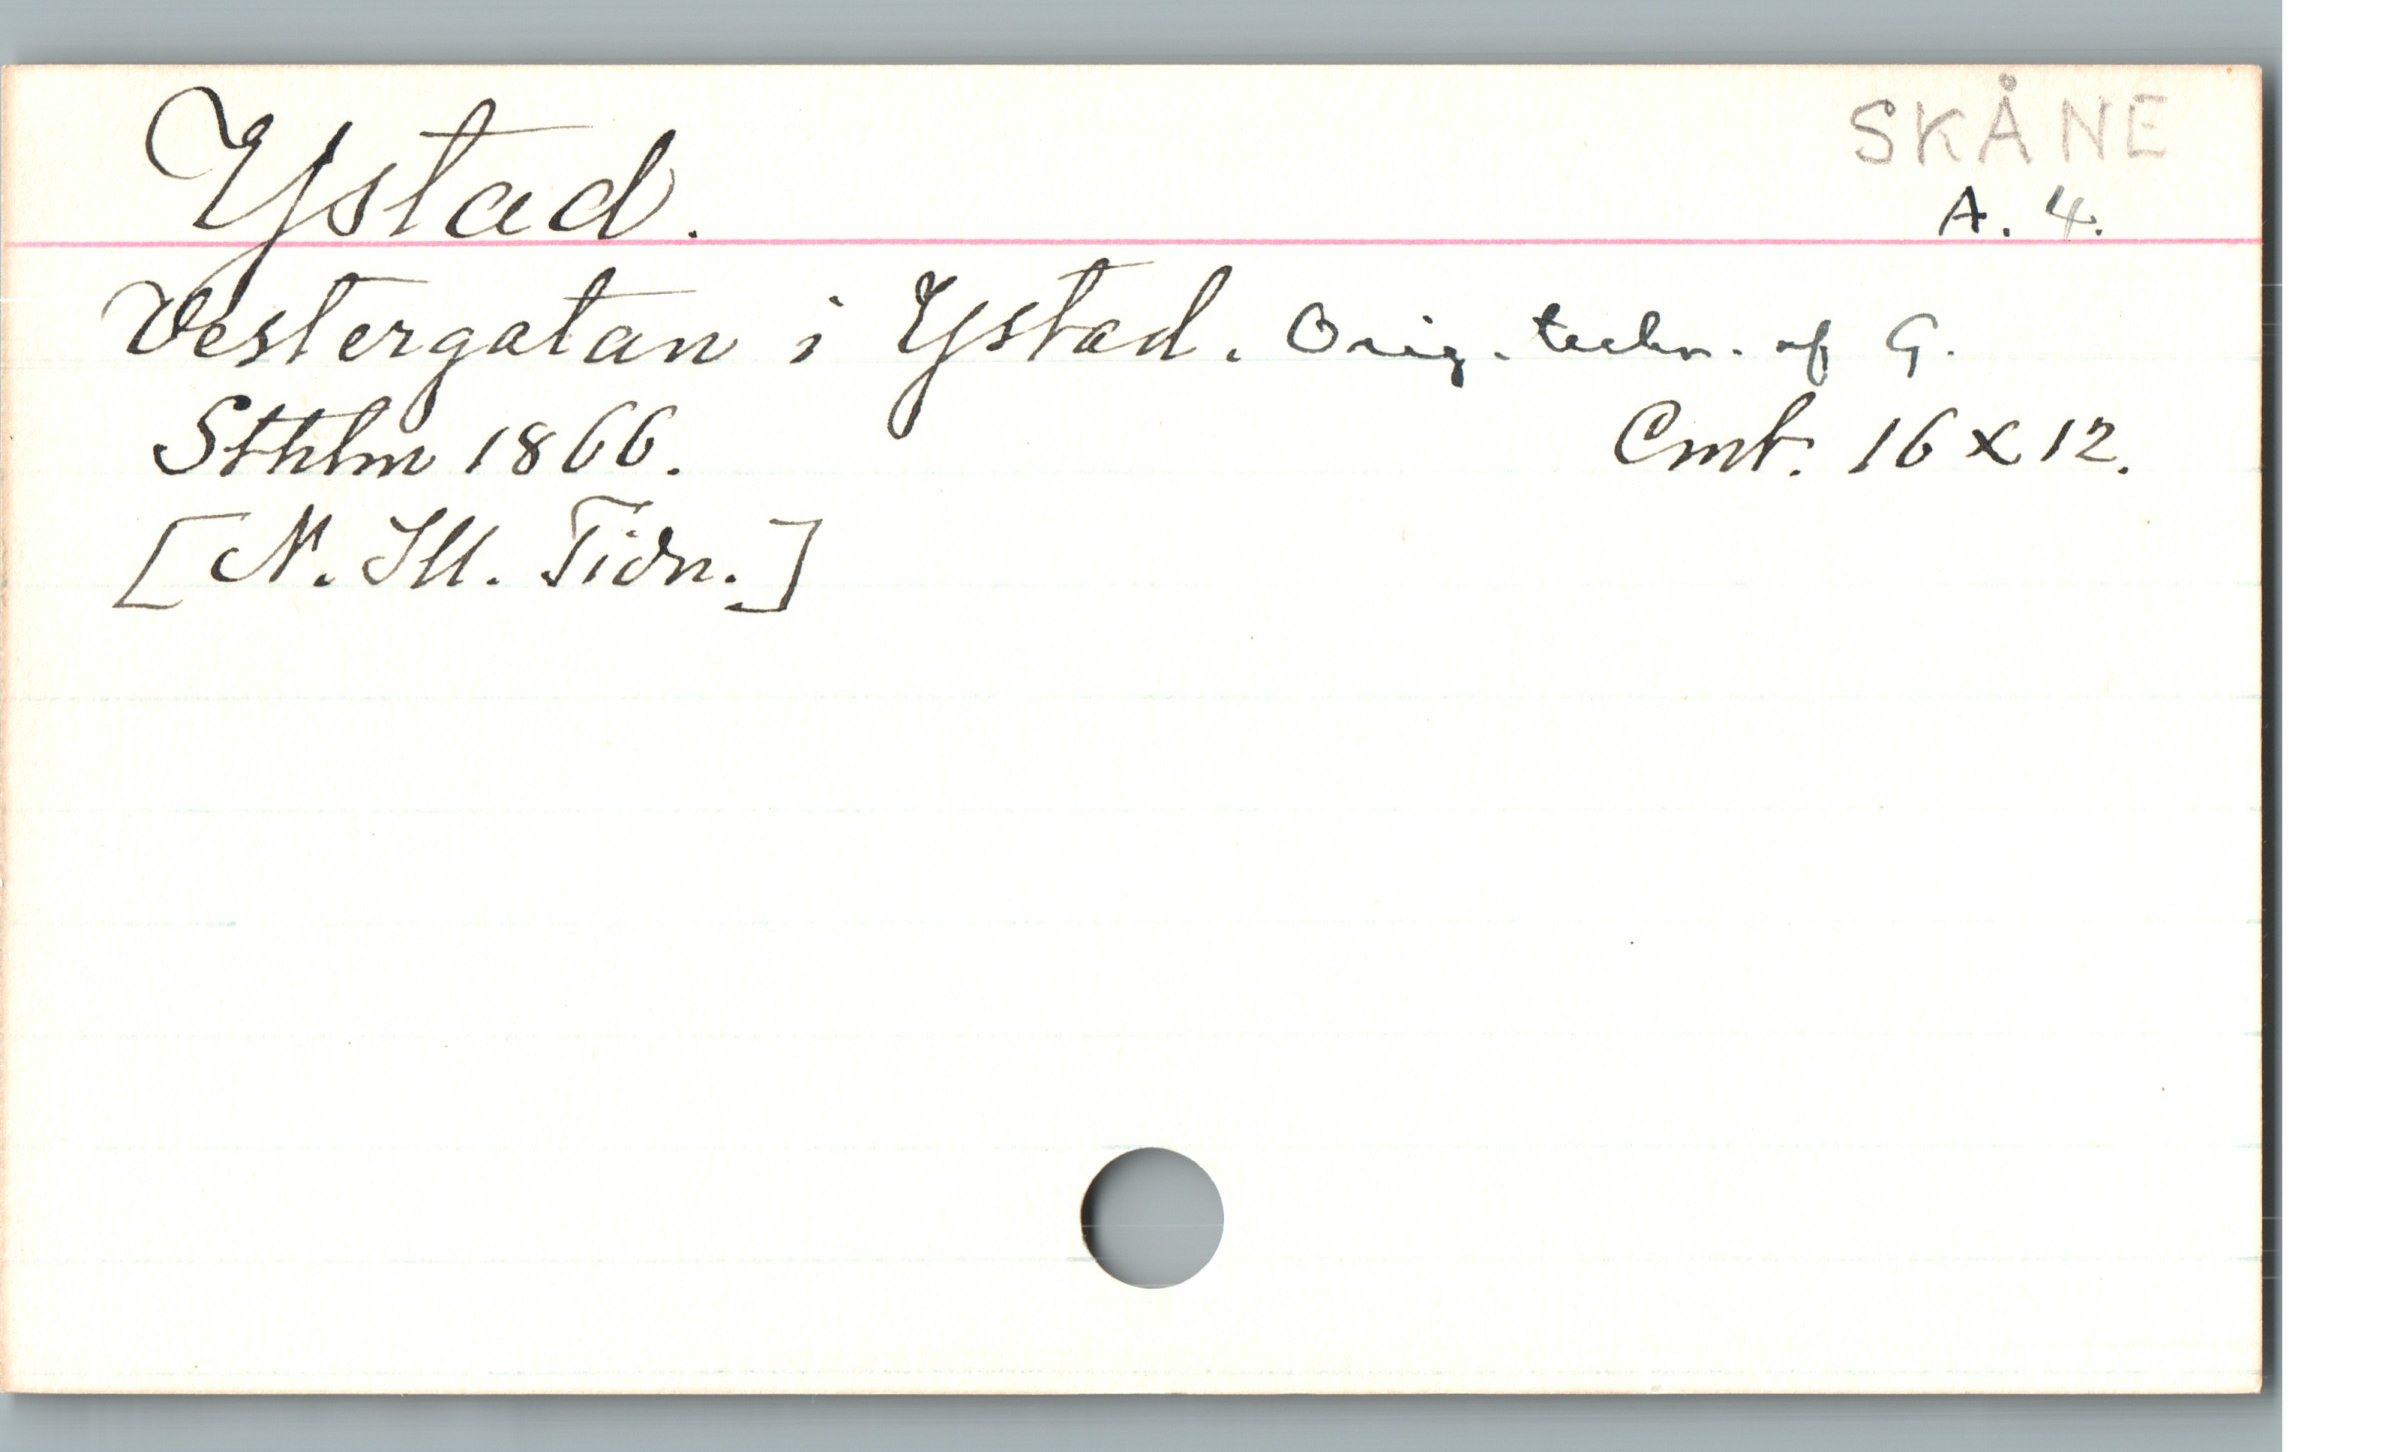 Ystad.
SKÅNE
A. 4.
Vestergatan i Ystad. Orig. teckn. af G.
Sthlm 1866. Cmt. 16 x 12.
[N. Ill. Tidn.]